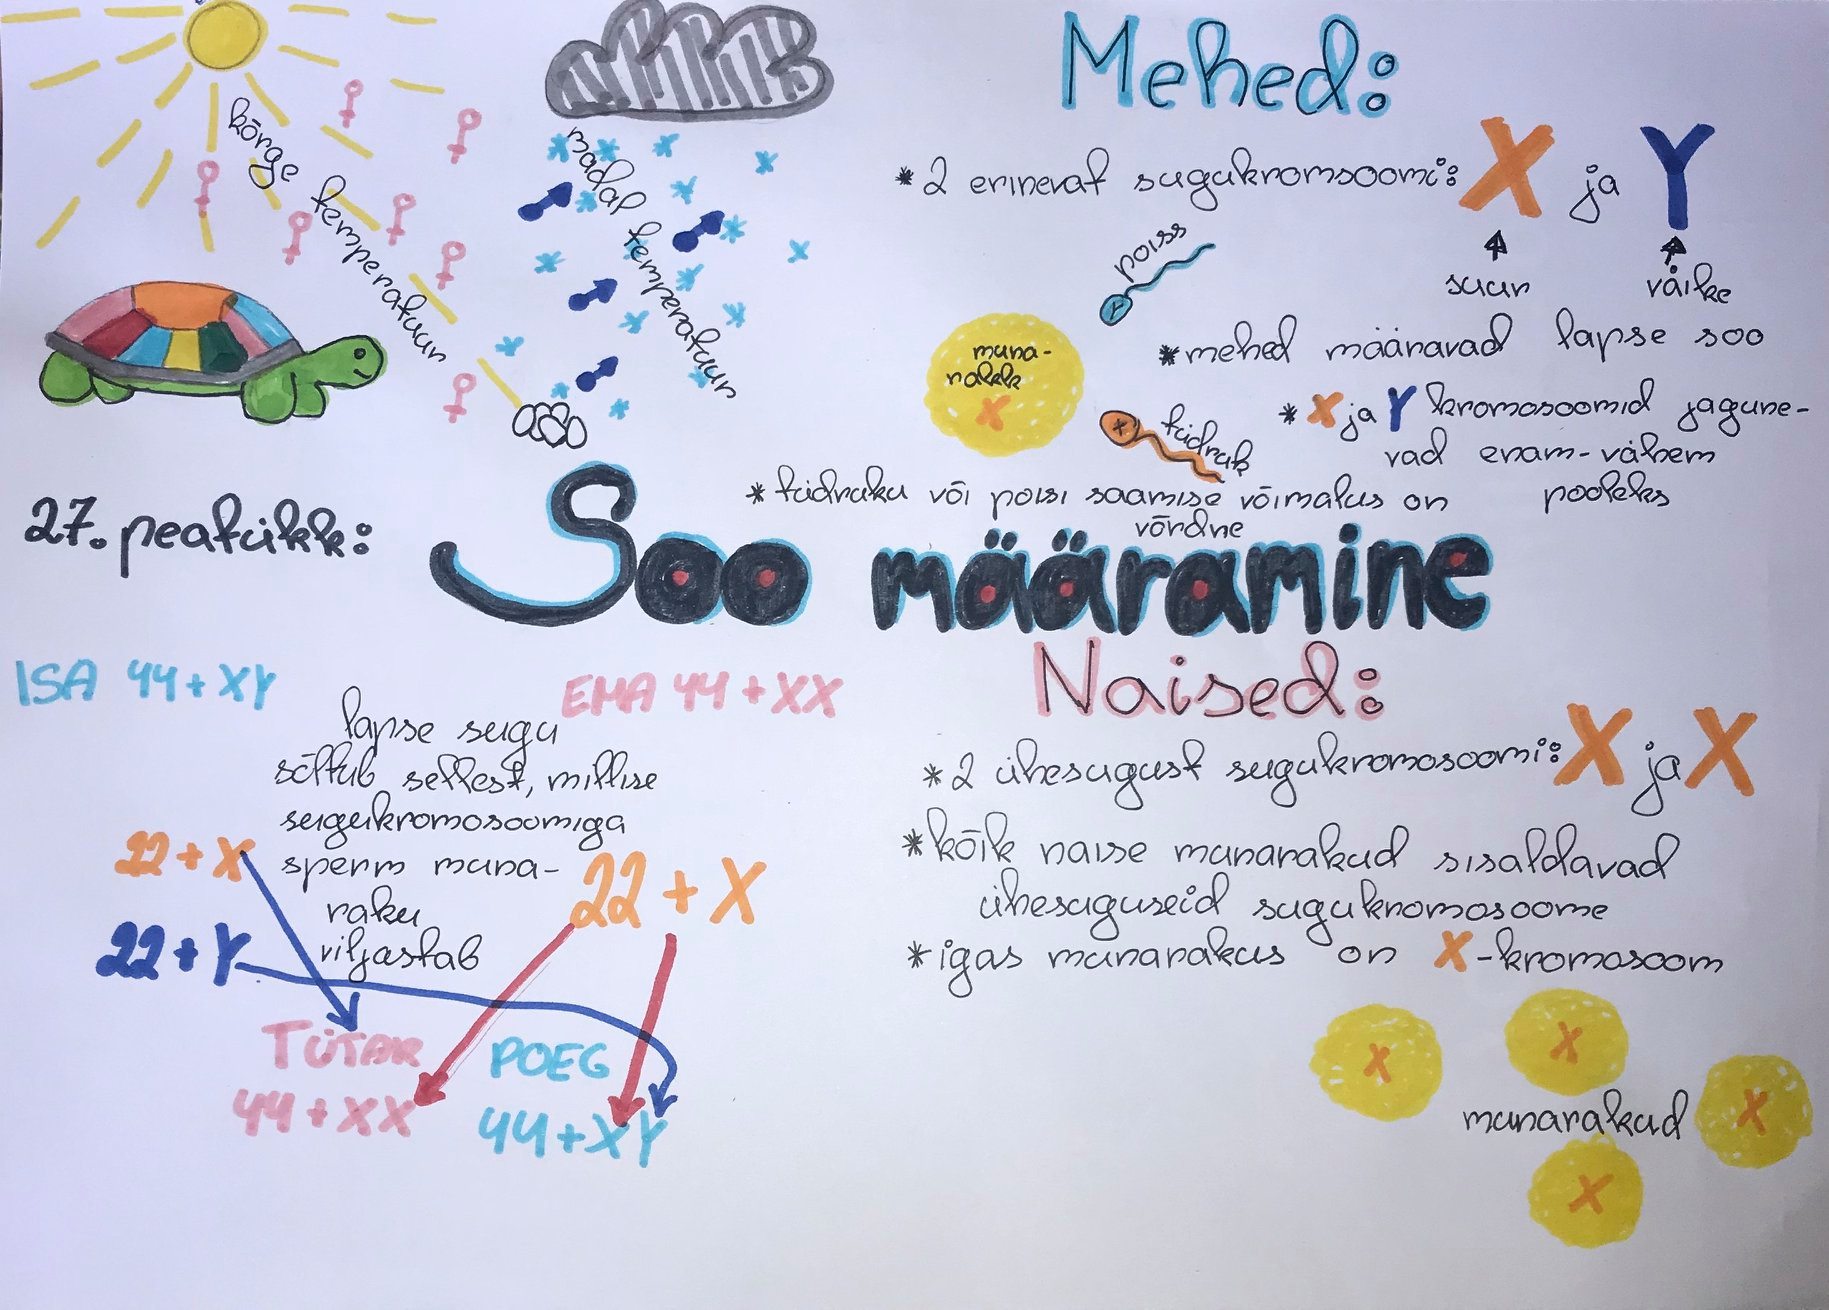 kõrge temperatuur
madal temperatuur
Mehed:
* 2 erinevat sugukromsoomi: X ja Y
suur
väike
poiss
Y
* mehed määravad lapse soo
muna-
rakk
X
X
tüdruk
* X ja Y kromosoomid jagune-
vad enam-vähem
pooleks
* tüdruku või poisi saamise võimalus on
võrdne
27. peatükk:
Soo määramine
ISA 44 + XY
EMA 44 + XX
lapse sugu
sõltub sellest, millise
sugukromosoomiga
sperm muna-
raku
viljastab
22 + X
22 + Y
22 + X
TÜTAR
44 + XX
POEG
44 + XY
Naised:
* 2 ühesugust sugukromosoomi: X ja X
* kõik naise munarakud sisaldavad
ühesuguseid sugukromosoome
* igas munarakus on X-kromosoom
X
X
X
munarakud
X